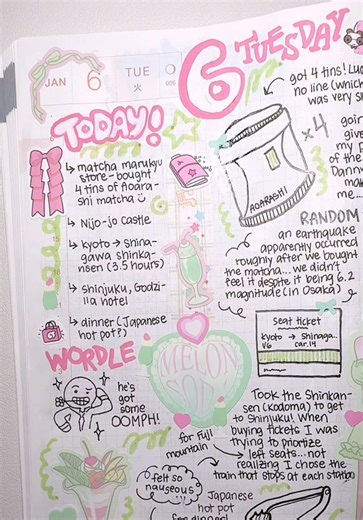 JAN 6 TUE
火 006
6 TUESDAY
TODAY!
↳ matcha marukyu
store - bought
4 tins of Aoara-
shi matcha
↳ Nijo-jo Castle
↳ kyoto → shina-
gawa shinka-
nsen (3.5 hours)
↳ shinjuku, Godzi-
lla hotel
↳ dinner (Japanese
hot pot?)
WORDLE
he's
got
some
OOMPH!
got 4 tins!
no line (which
was very
x4
AOARASHI
goin
my
of the
me...
RANDOM
an earthquake
apparently occurred
roughly after we bought
the matcha... we didn't
feel it despite it being 6.2
magnitude (in Osaka).
seat ticket
kyoto → shinaga..
v6 car.14
MELON
SODA
for Fuji
mountain
Took the Shinkan-
sen (kodoma) to get
to Shinjuku! When
buying tickets I was
trying to priortize
left seats...not
realizing I chose the
train that stops at each station
felt so
nauseous
Japanese
hot pot
for dinner!